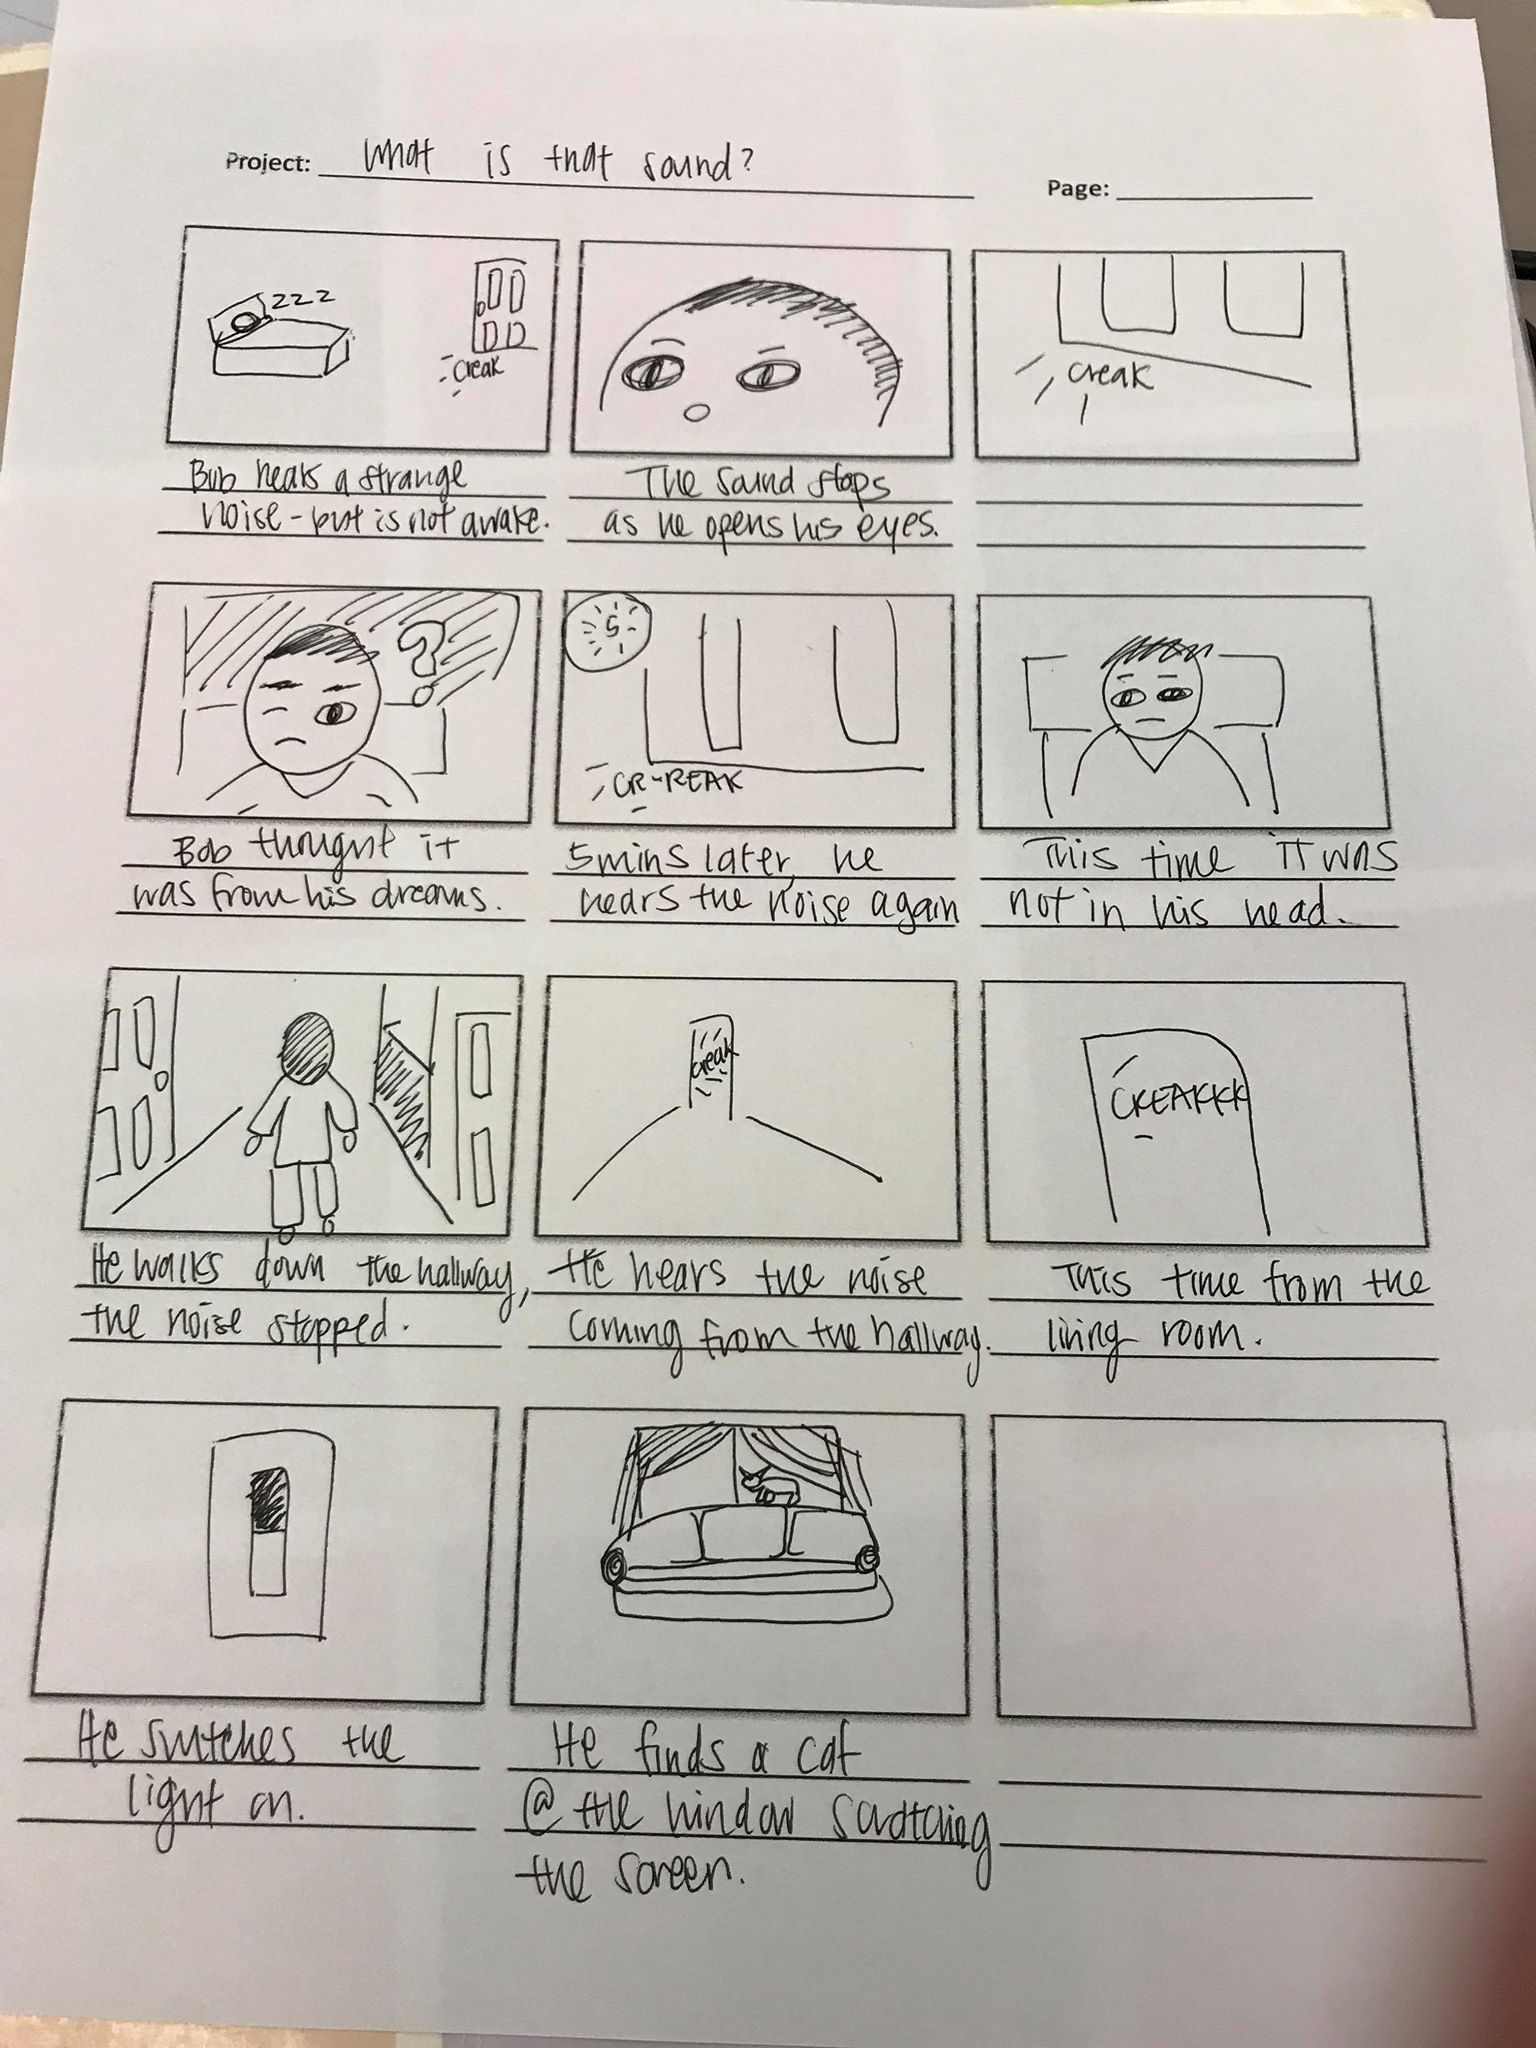 Project: What is that sound?
Page:
zzz
creak
Bob hears a strange
noise - but is not awake.
The sound stops
as he opens his eyes.
creak
?
Bob thought it
was from his dreams.
5
CR-REAK
5mins later, he
hears the noise again
This time it was
not in his head.
He walks down the hallway,
the noise stopped.
creak
He hears the noise
coming from the hallway.
CREAKKK
This time from the
living room.
He switches the
light on.
He finds a cat
@ the window scratching
the screen.